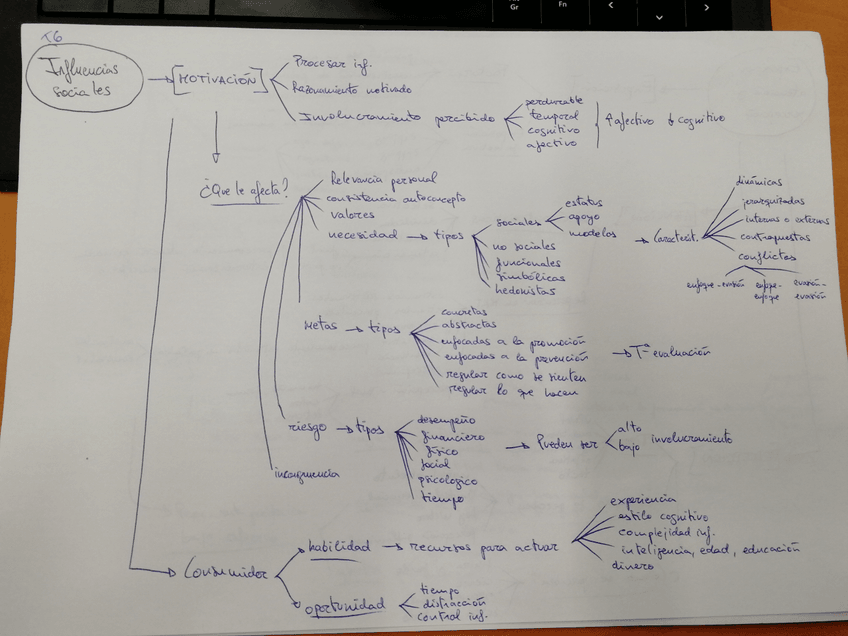 T6
Influencias
sociales
[MOTIVACIÓN]
Procesar inf.
Razonamiento motivado
Involucramiento percibido
perdurable
temporal
cognitivo
afectivo
↑ afectivo ↓ cognitivo
¿Que le afecta?
Relevancia personal
consistencia autoconcepto
valores
necesidad → tipos
sociales
estatus
apoyo
modelos
no sociales
funcionales
simbólicas
hedonistas
→ Característ.
dinámicas
jerarquizadas
internas o externas
contrapuestas
conflictos
enfoque-evasión
enfoque-
enfoque
evasión-
evasión
Metas → tipos
concretas
abstractas
enfocadas a la promoción
enfocadas a la prevención
regular como se sienten
regular lo que hacen
→ Tª evaluación
riesgo → tipos
desempeño
financiero
físico
social
psicologico
tiempo
→ Pueden ser
alto
bajo
involucramiento
incongruencia
Consumidor
habilidad → recursos para actuar
experiencia
estilo cognitivo
complejidad inf.
inteligencia, edad, educación
dinero
oportunidad
tiempo
distracción
control inf.
Alt
Gr
Fn